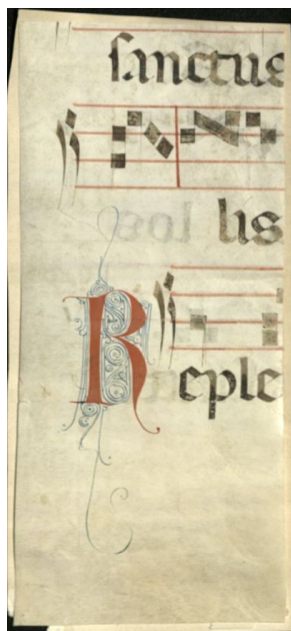 sanctus
lis
Reple